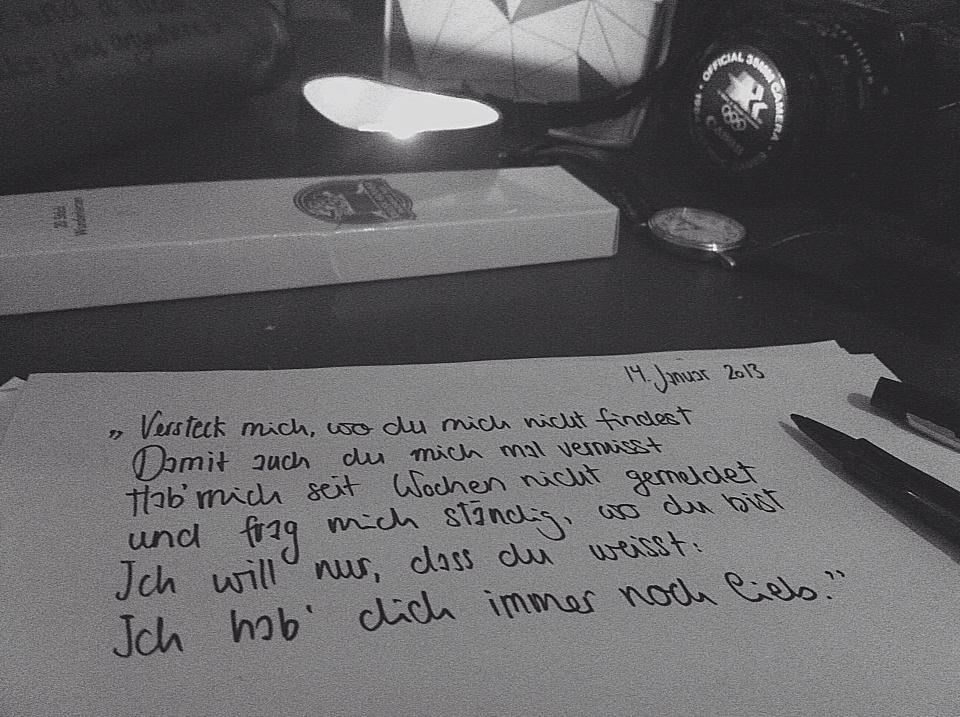 you anywhere
OFFICIAL 35MM CAMERA
Canon
20 Stück
Wunderkerzen
14. Januar 2013
„Versteck mich, wo du mich nicht findest
Damit auch du mich mal vermisst
Hab' mich seit Wochen nicht gemeldet
und frag mich ständig, wo du bist
Ich will nur, dass du weisst:
Ich hab' dich immer noch lieb.”